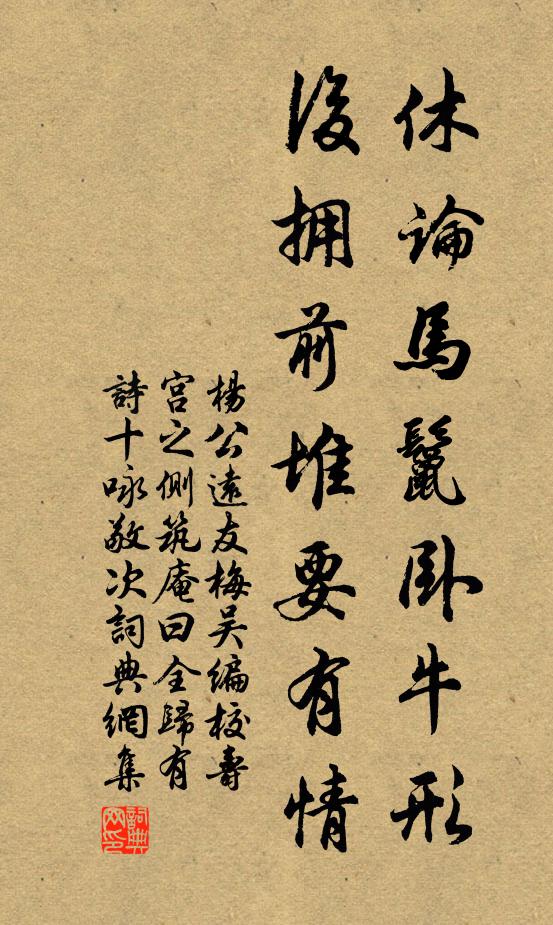 休論馬鬣臥牛形
後拥前堆要有情
楊公遠友梅吴编校壽
宫之側筑庵曰全歸有
詩十咏敬次詞典網集
詞典网印